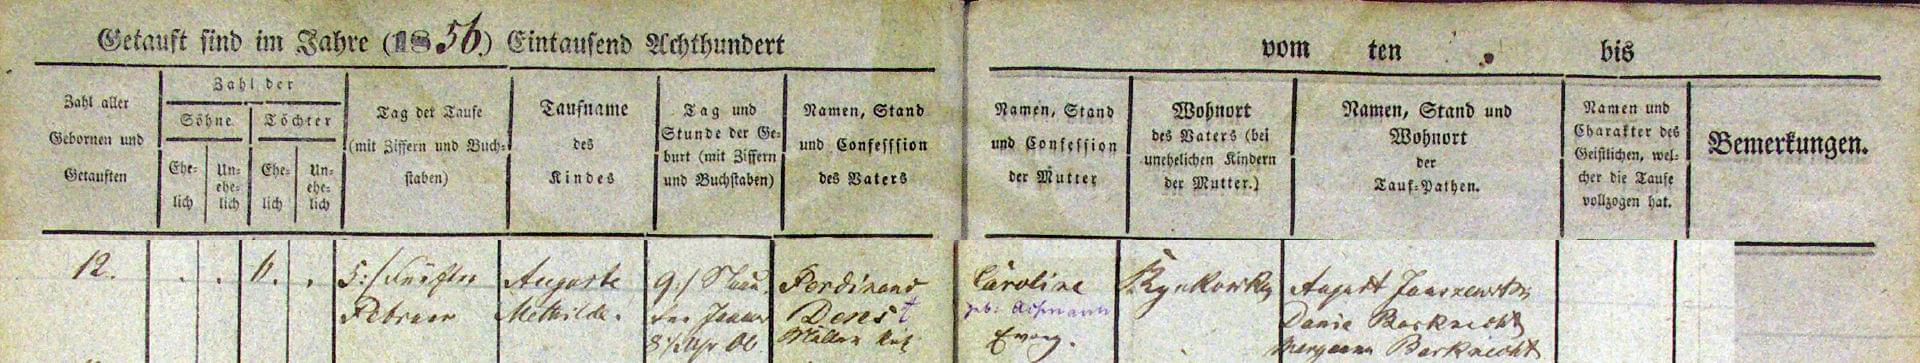 Getauft sind im Jahre (1856.) Eintausend Achthundert vom ten bis
Zahl aller
Gebornen und
Getauften
Zahl der
Söhne
Töchter
Ehe-
lich
Un-
ehe-
lich
Ehe-
lich
Un-
ehe-
lich
Tag der Taufe
(mit Ziffern und Buch-
staben)
Taufname
des
Kindes
Tag und
Stunde der Ge-
burt (mit Ziffern
und Buchstaben)
Namen, Stand
und Confesssion
des Vaters
Namen, Stand
und Confession
der Mutter
Wohnort
des Vaters (bei
unehelichen Kindern
der Mutter.)
Namen, Stand und
Wohnort
der
Tauf-Pathen.
Namen und
Charakter des
Geistlichen, wel-
cher die Taufe
vollzogen hat.
Bemerkungen.
12.
5:/ Fünften
Februar
Auguste
Mathilde.
9:/
Januar
8 Uhr Ab
Ferdinand
Müller
Caroline
geb:
Evang.
August
Barknecht
Barknecht